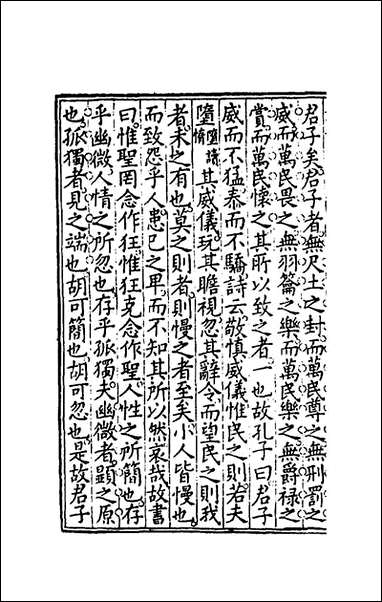 君子矣君子者無尺土之封而萬民尊之無刑罰之
威而萬民畏之無羽籥之樂而萬民樂之無爵祿之
賞而萬民懷之其所以致之者一也故孔子曰君子
威而不猛泰而不驕詩云敬慎威儀惟民之則若夫
墮其威儀玩其瞻視忽其辭令而望民之則我
者未之有也莫之則者則慢之者至矣小人皆慢也
而致怨乎人患已之卑而不知其所以然哀哉故書
曰惟聖罔念作狂惟狂克念作聖人性之所簡也存
乎幽微人情之所忽也存乎孤獨夫幽微者顯之原
也孤獨者見之端也胡可簡也胡可忽也是故君子